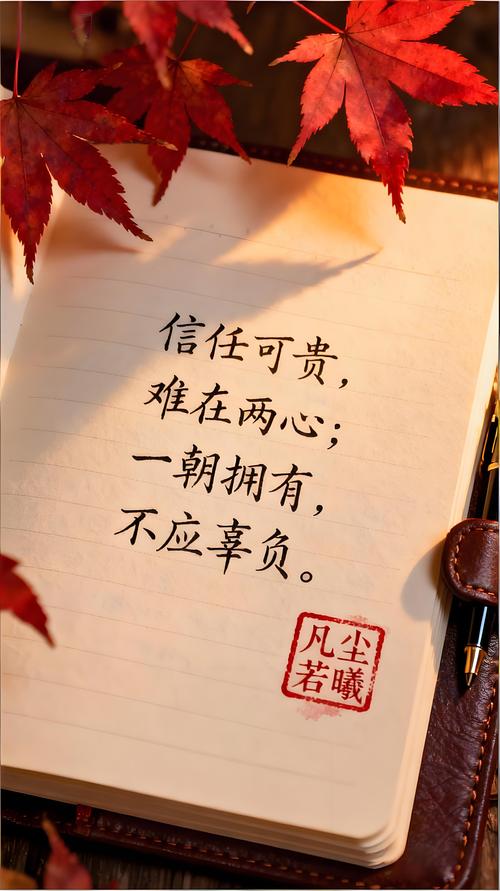 信任可贵，
难在两心；
一朝拥有，
不应辜负。
凡尘
若曦